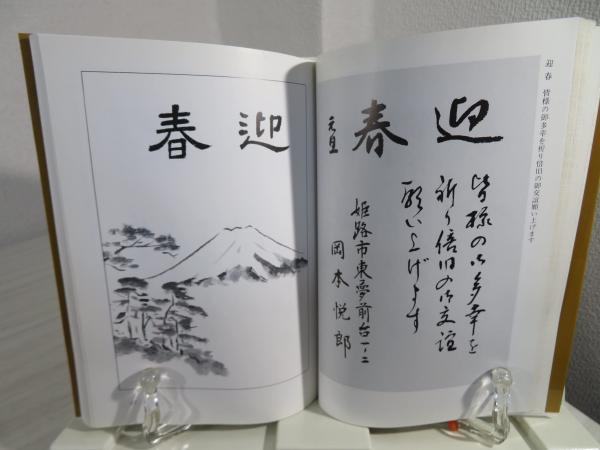 迎春　皆様の御多幸を祈り倍旧の御交誼願い上げます
迎春
皆様の御多幸を
祈り倍旧の御交誼
願い上げます
元旦
姫路市東夢前台一ノ二
岡本悦郎
迎春